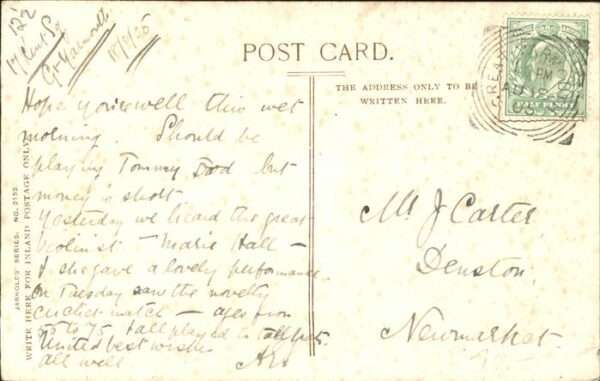 122
17 Kent Sq
Gt Yarmouth
18/8/06
POST CARD.
THE ADDRESS ONLY TO BE
WRITTEN HERE.
HALF PENNY
Hope you're well this wet
morning. Should be
playing Tommy Dod but
money is short
Yesterday we heard the great
violinist - Marie Hall -
& she gave a lovely performance.
On Tuesday saw the novelty
cricket match - ages from
55 to 75 & all played in
United best wishes
all well
Mr J Carter
Denston
Newmarket
JARROLDS' SERIES. NO. 2152
WRITE HERE FOR INLAND POSTAGE ONLY